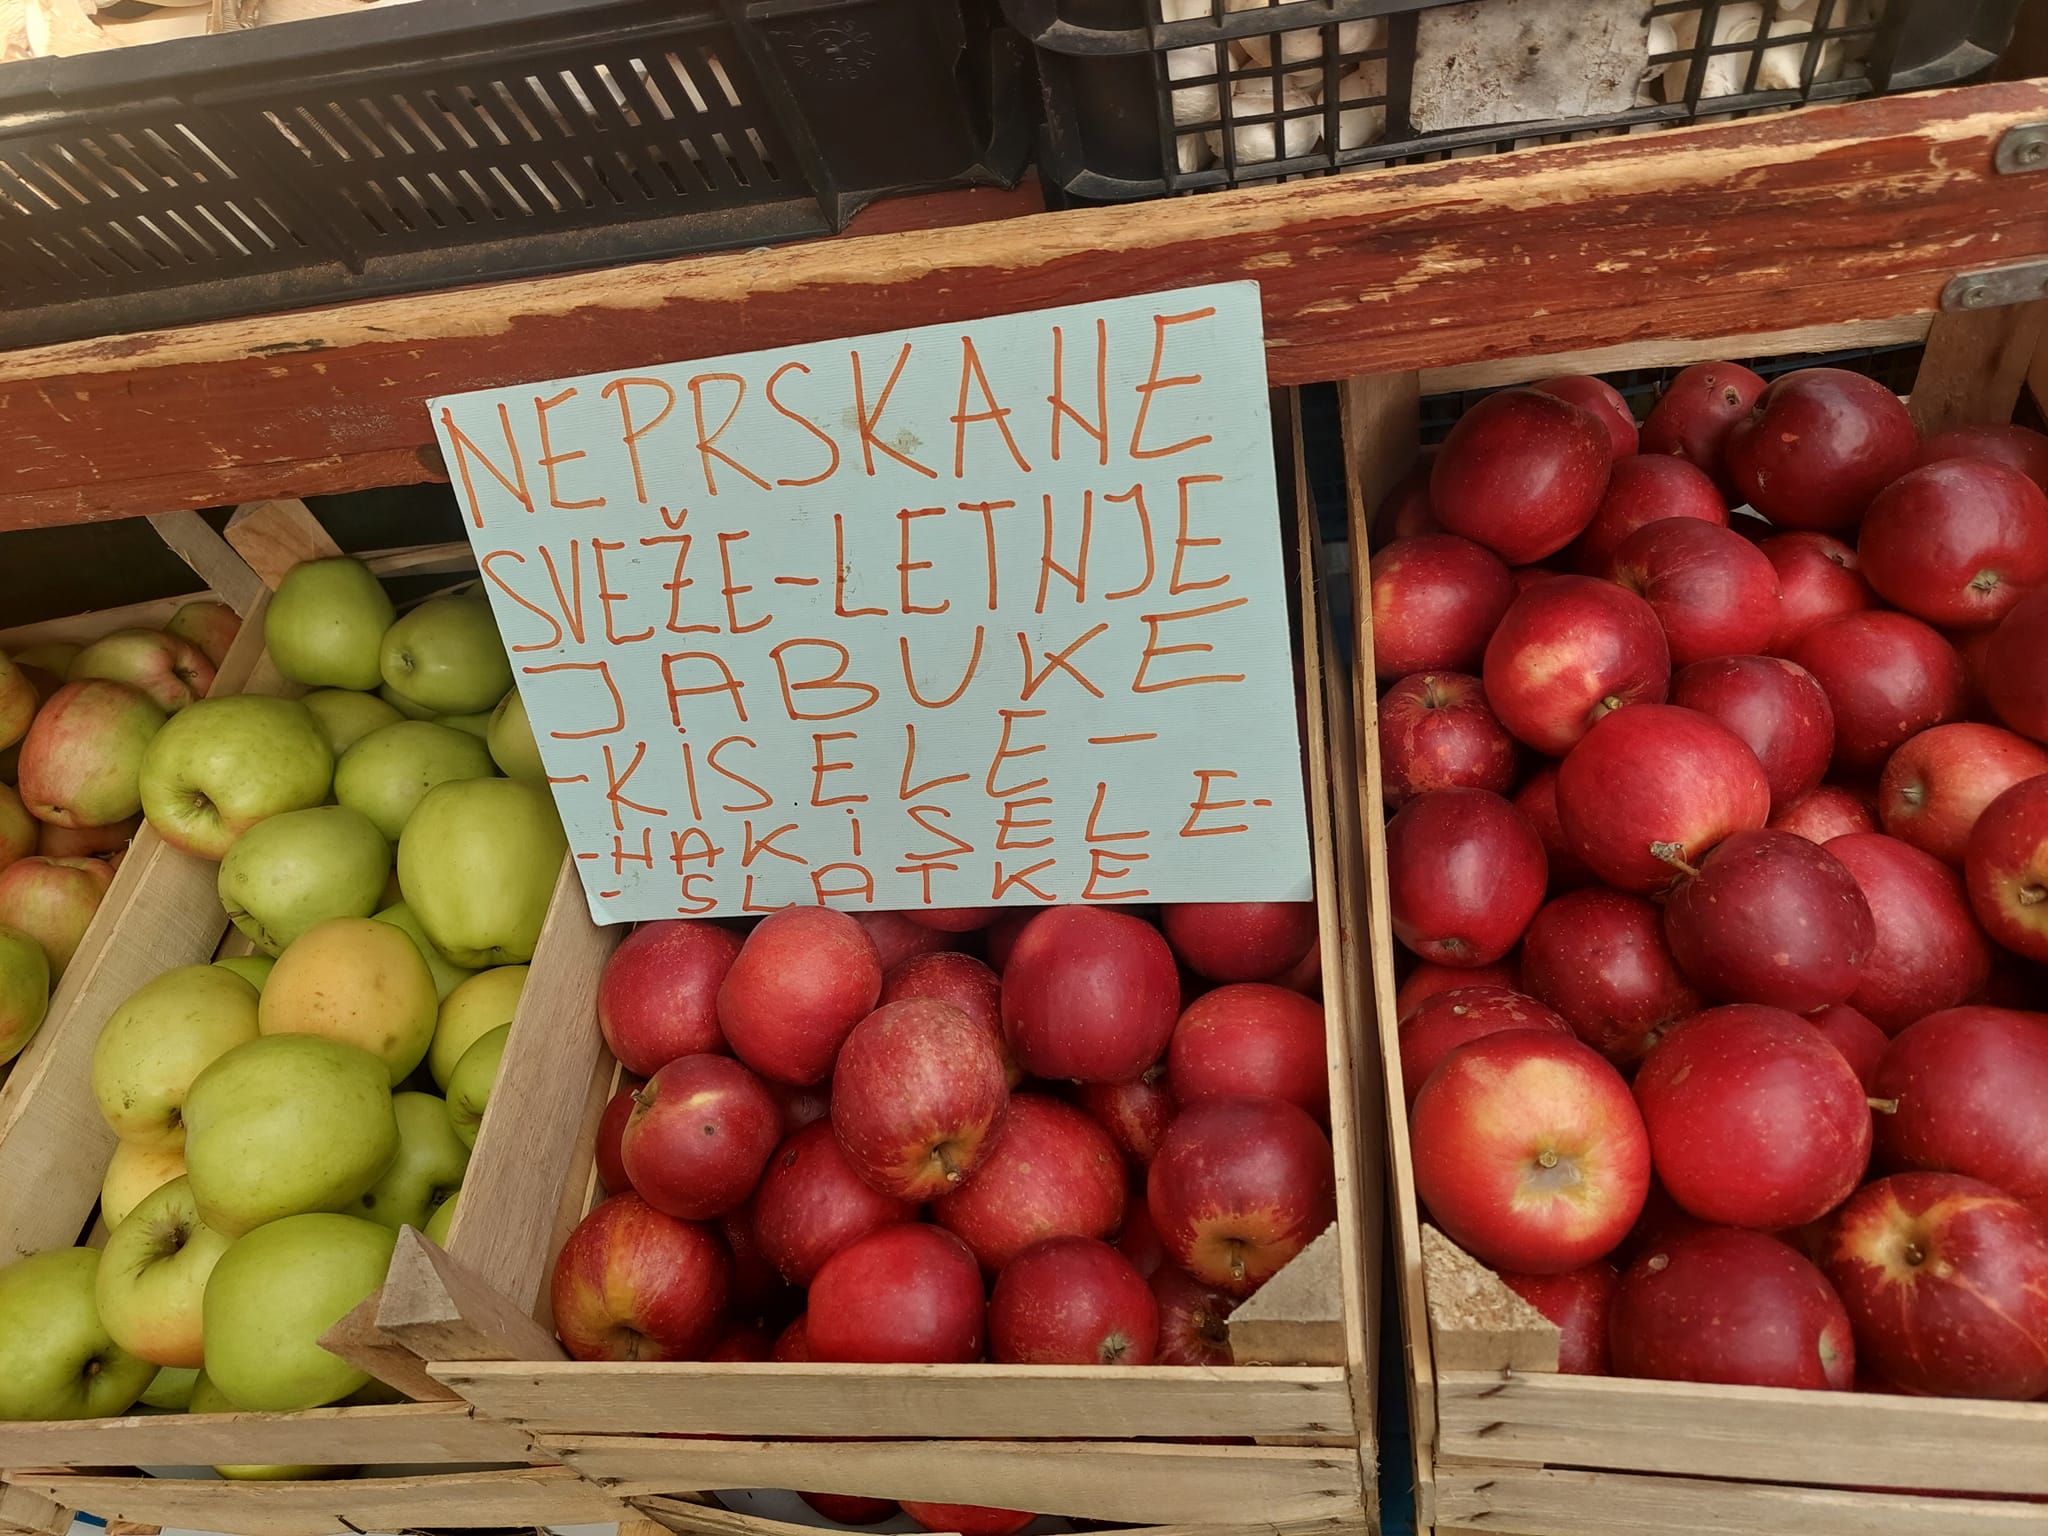 NEPRSKANE
SVEŽE-LETNJE
JABUKE
-KiSELE-
-NAKiSELE-
- SLATKE